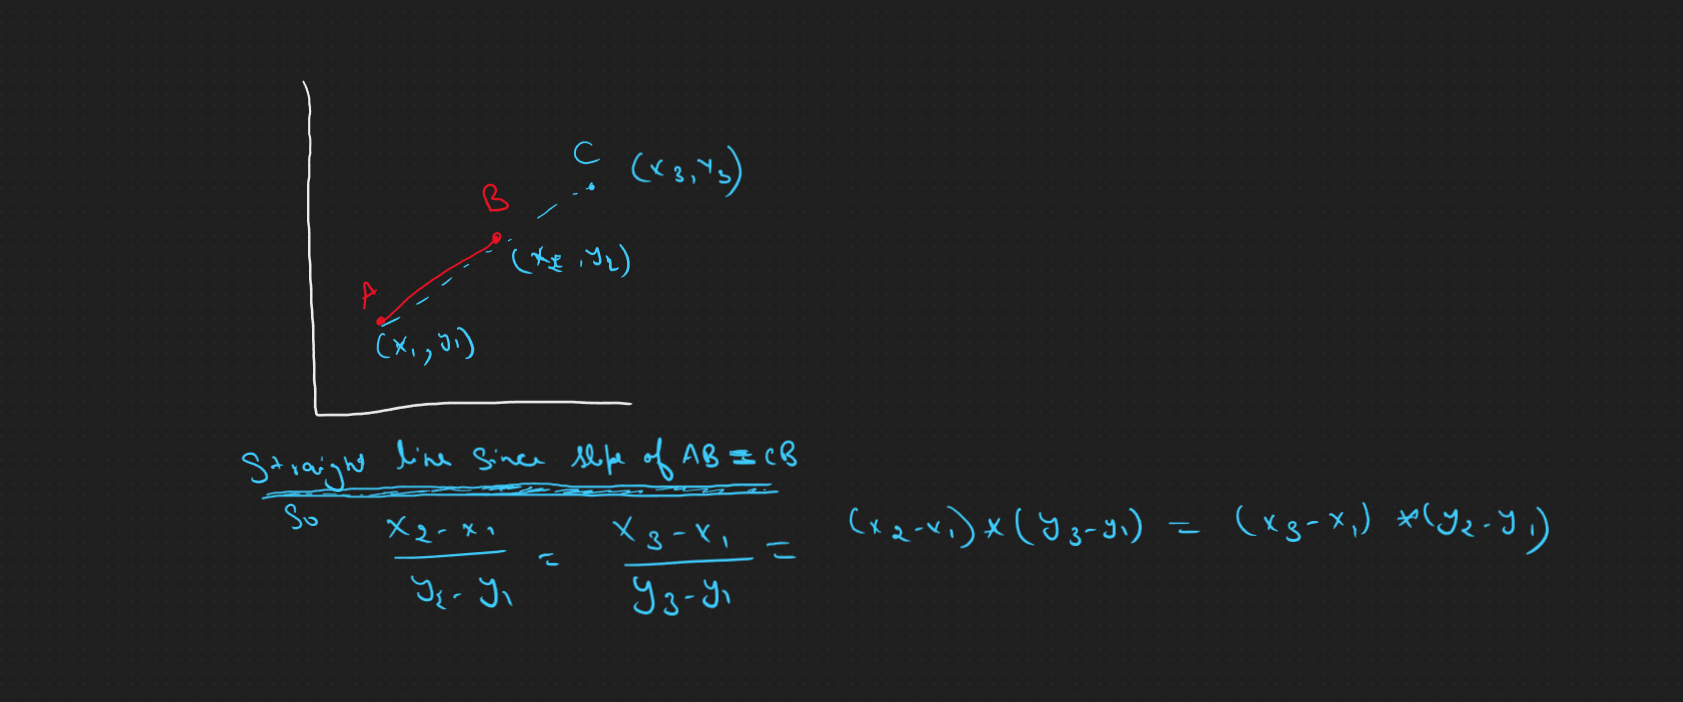 C (x3, y3)
B
(x2, y2)
A
(x1, y1)
Straight line since slope of AB = CB
So x2 - x1 / y2 - y1 = x3 - x1 / y3 - y1 = (x2 - x1) * (y3 - y1) = (x3 - x1) * (y2 - y1)